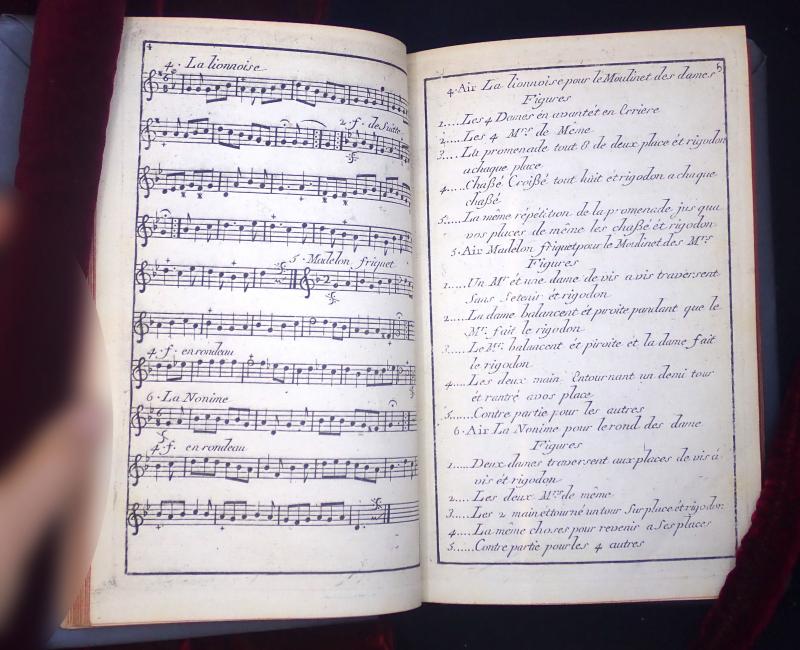 4
4. La lionnoise
2. f. de Suitte
5. Madelon friquet
4. f. en rondeau
6. La Nonime
4. f. en rondeau
5
4. Air La lionnoise pour le Moulinet des dames
Figures
1.....Les 4 Dames en avant ét en Erriere
2.....Les 4 Mrs. de Meme
3.... La promenade tout 8 de deux place ét rigodon
a chaque place
4....Chaßé Croißé tout huit ét rigodon a chaque
chaßé
5.....La même répétition de la promenade jus qua
vos places de même les chaßé ét rigodon
5. Air Madelon friquet pour le Moulinet des Mrs
Figures
1.....Un Mr. ét une dame de vis a vis traversent
Sans Setenir ét rigodon
2.....La dame balancent ét piroite pandant que le
Mr. fait le rigodon
3.....Le Mr. balancent ét piroite et la dame fait
le rigodon
4....Les deux main Entournant un demi tour
ét rantré a vos place
5.....Contre partie pour les autres
6. Air La Nonime pour le rond des dame
Figures
1.....Deux dames traversent aux places de vis á
vis ét rigodon
2.....Les deux Mrs de même
3.....Les 2 main et tourné un tour Sur place ét rigodon
4.....La même choses pour revenir a Ses places
5......Contre partie pour les 4 autres